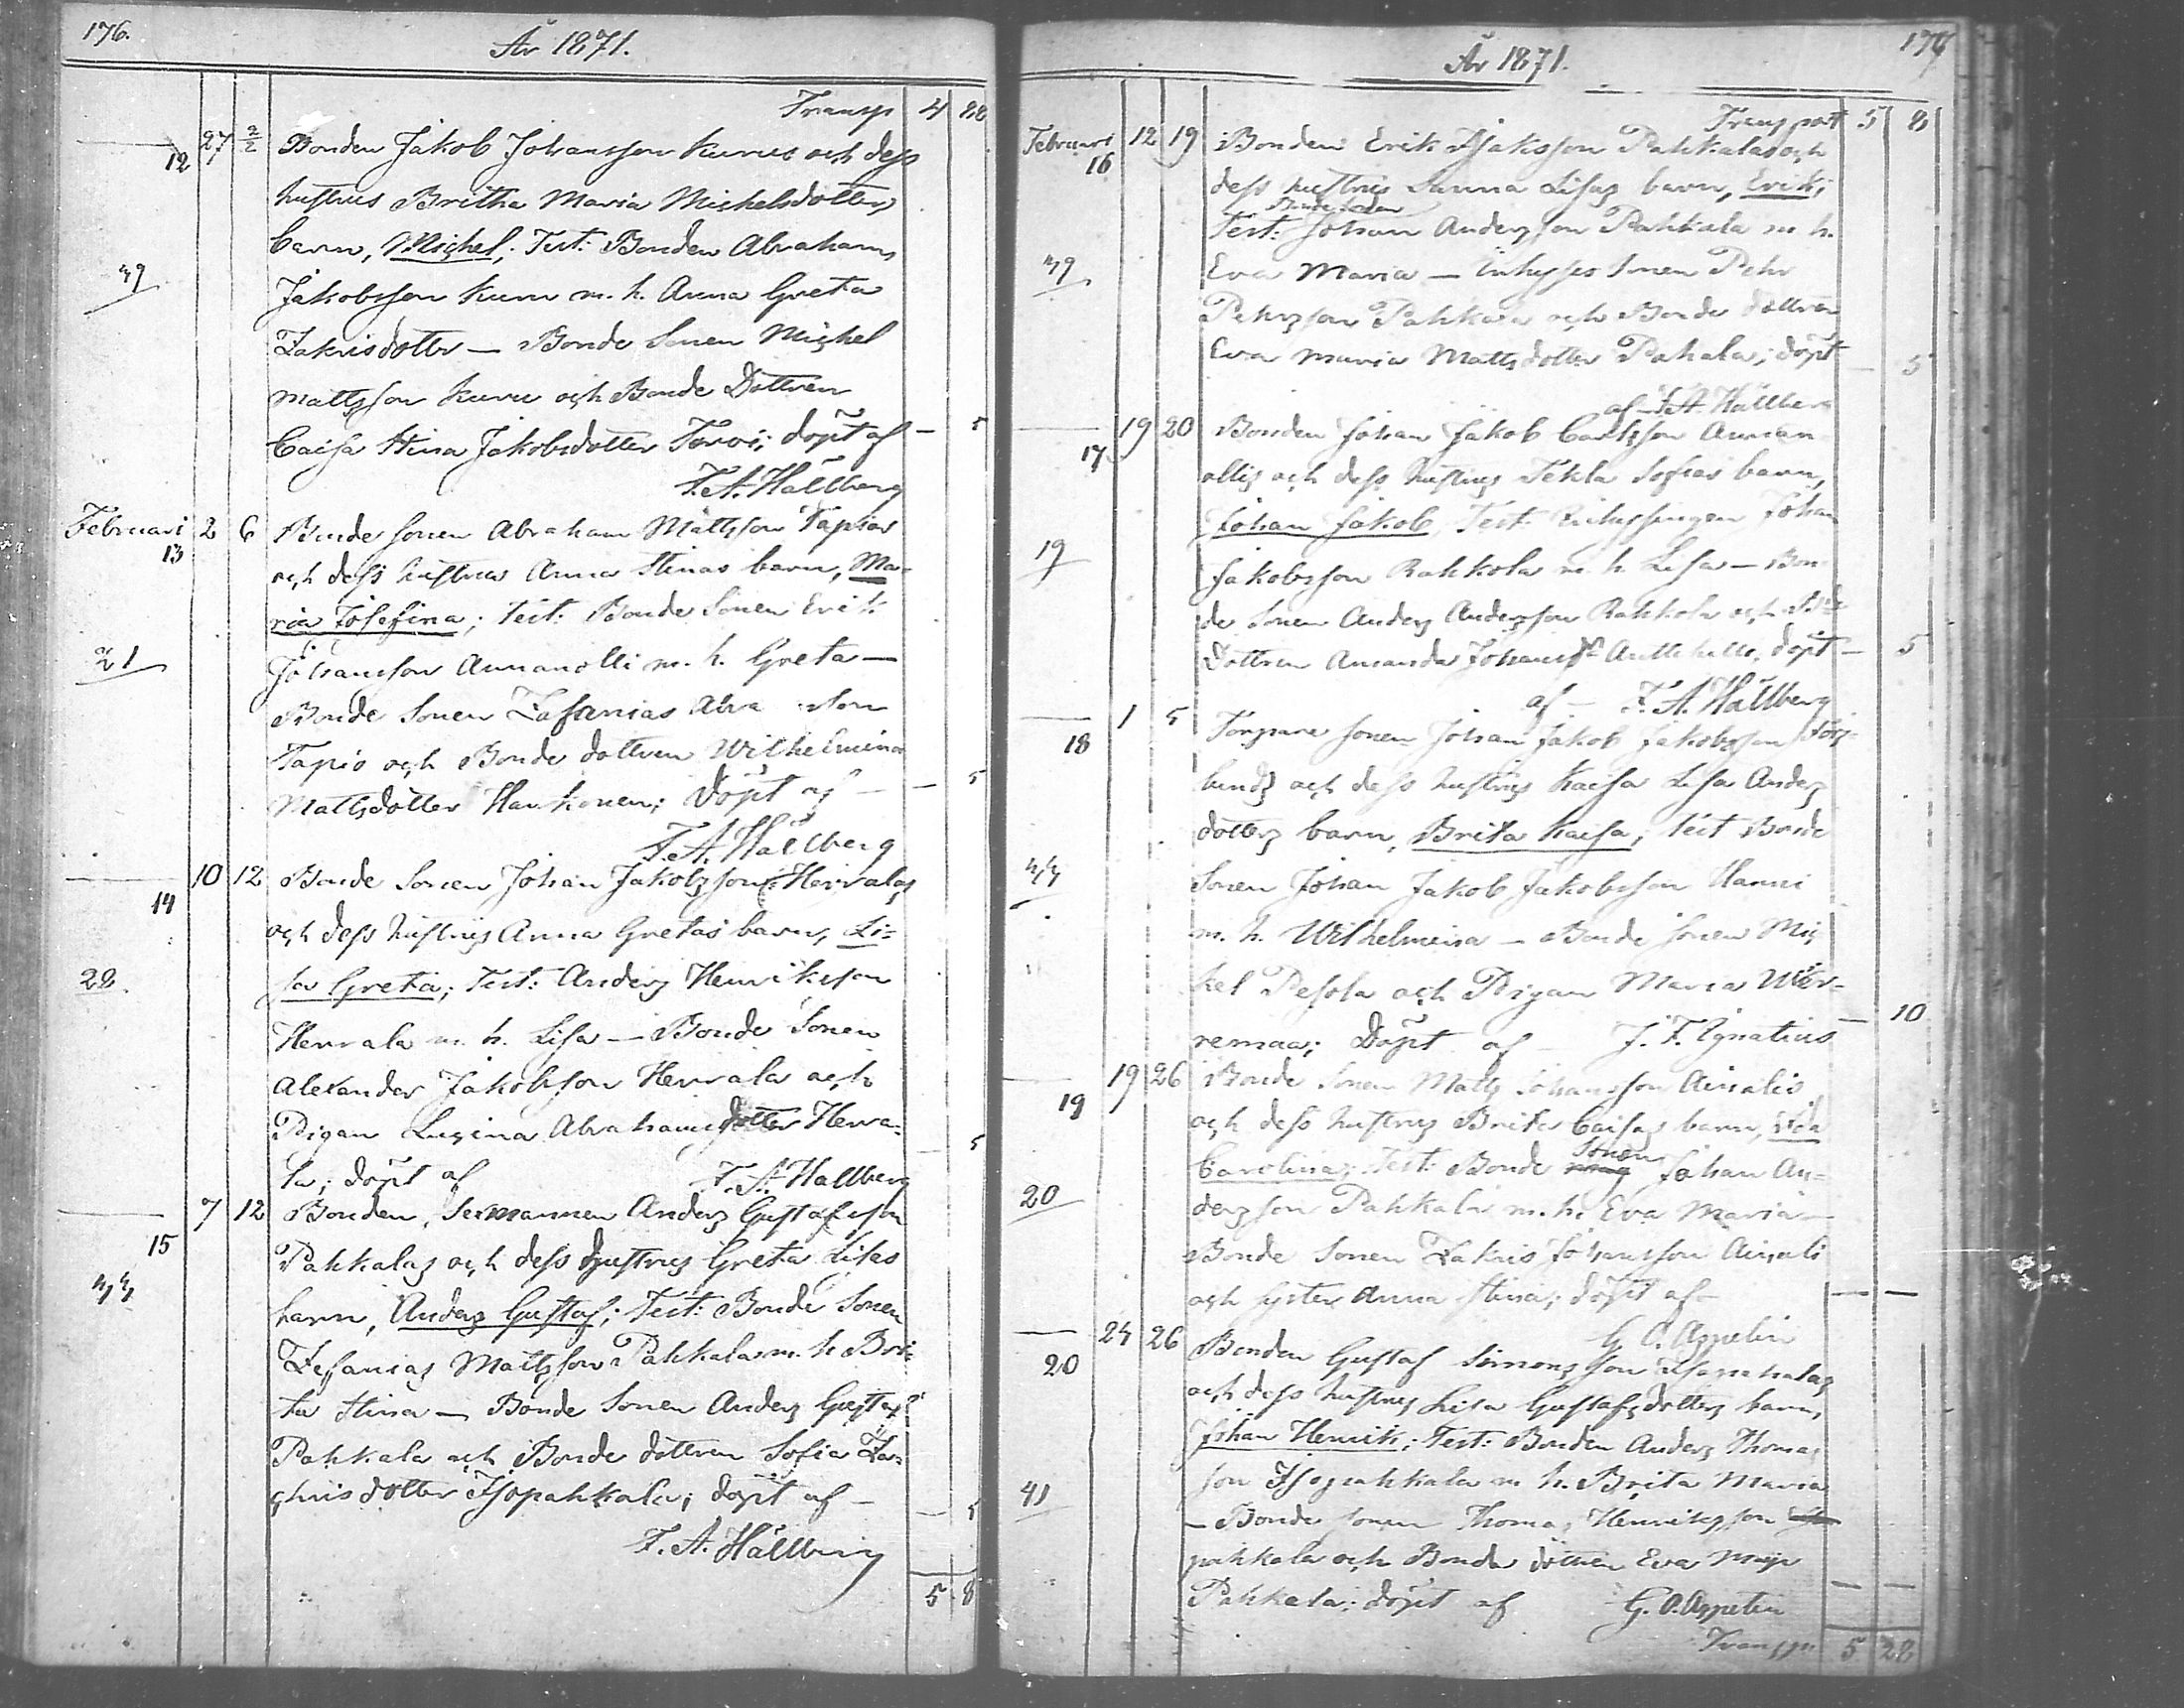 176.
År 1871.
Transp 4 88
12 27 2/2 Bonden Jakob Johansson Kurus och dess
hustrus Britha Maria Michelsdotters
barn, Michel; Test: Bonden Abraham
39 Jakobsson Kuru m. h. Anna Greta
Zakrisdotter — Bonde Sonen Michel
Mattsson Kuru och Bonde Dottren
Caisa Stina Jakobsdotter Torvi; döpt af — 5
F. A. Hällberg
Februari 13 2 6 Bonde sonen Abraham Mattsson Tapios
och dess hustrus Anna Stinas barn, Ma-
ria Josefina; Test: Bonde Sonen Erik
21 Johansson Annanolli m. h. Greta —
Bonde Sonen Zafanias Abra son
Tapio och Bonde dottren Wilhelmina
Mattsdotter Haukonen; Döpt af — — 5
F. A. Hällberg
14 10 12 Bonde Sonen Johan Jakobsson Herralas
och dess hustrus Anna Gretas barn, Li-
28. sa Greta; Test: Anders Henriksson
Herrala m. h. Lisa — Bonde Sonen
Alexander Jakobsson Herrala och
Pigan Lucina Abrahamsdotter Herra-
la; döpt af F. A. Hallberg — 5
15 7 12 Bonden, Sexmannen Anders Gustafsson
Pahkalas och dess hustrus Greta Lisas
33 barn, Anders Gustaf; Test: Bonde Sonen
Zefanias Mattsson Pahkala m. h. Bri-
ta Stina — Bonde Sonen Anders Gustaf
Pahkala och Bonde dottren Sofia Za-
chrisdotter Isopahkala; döpt af — — 5
F. A. Hällberg
5 8
177
År 1871.
Transport 5 8
Februari 16 12 19 Bonden Erik Isaksson Pahkalas och
dess hustrus Sanna Lisas barn, Erik;
Bonde Sonen
Test: Johan Andersson Pahkala m. h.
39 Eva Maria — Inhyses sonen Pehr
Pehrsson Pahkala och Bonde dottren
Eva Maria Mattsdotter Pahala; döpt — 5
af F. A. Hällberg
17 19 20 Bonden Johan Jakob Carlsson Annan
ollis och dess hustrus Tekla Sofias barn,
Johan Jakob, Test: Inhysingen Johan
19 Jakobsson Rahkola m. h. Lisa — Bon-
de Sonen Anders Andersson Rahkola och Bde
Dottren Amanda Johansdr Anttihille, döpt — 5
af — F. A. Hällberg
18 1 5 Torpare sonen Johan Jakob Jakobsson
och dess hustrus Kaisa Lisa Anders
dotters barn, Brita Kaisa; Test Bonde
33 Sonen Johan Jakob Jakobsson Hanni
m. h. Wilhelmina — Bonde sonen Mic
hel Pesola och Pigan Maria Wier-
remaa; Döpt af — J. F. Ignatius — 10
19 19 26 Bonde Sonen Matts Johansson Ainalis
och dess hustrus Brita Caisas barn, Ida
Carolina; Test: Bonde Sonen Johan An-
20 dersson Pahkala m. h. Eva Maria —
Bonde Sonen Zakris Johansson Ainali
och syster Anna Stina; döpt af — — —
G. O. Appelin
20 24 26 Bonden Gustaf Simonsson Isopahkalas
och dess hustrus Lisa Gustafsdotters barn,
Johan Henrik; Test: Bonden Anders Thomas
son Isopahkala m. h. Brita Maria
41 — Bonde sonen Thomas Henriksson
pahkala och Bonde dottren Eva Maja
Pahkala; döpt af G. O. Appelin — —
Transp 5 28